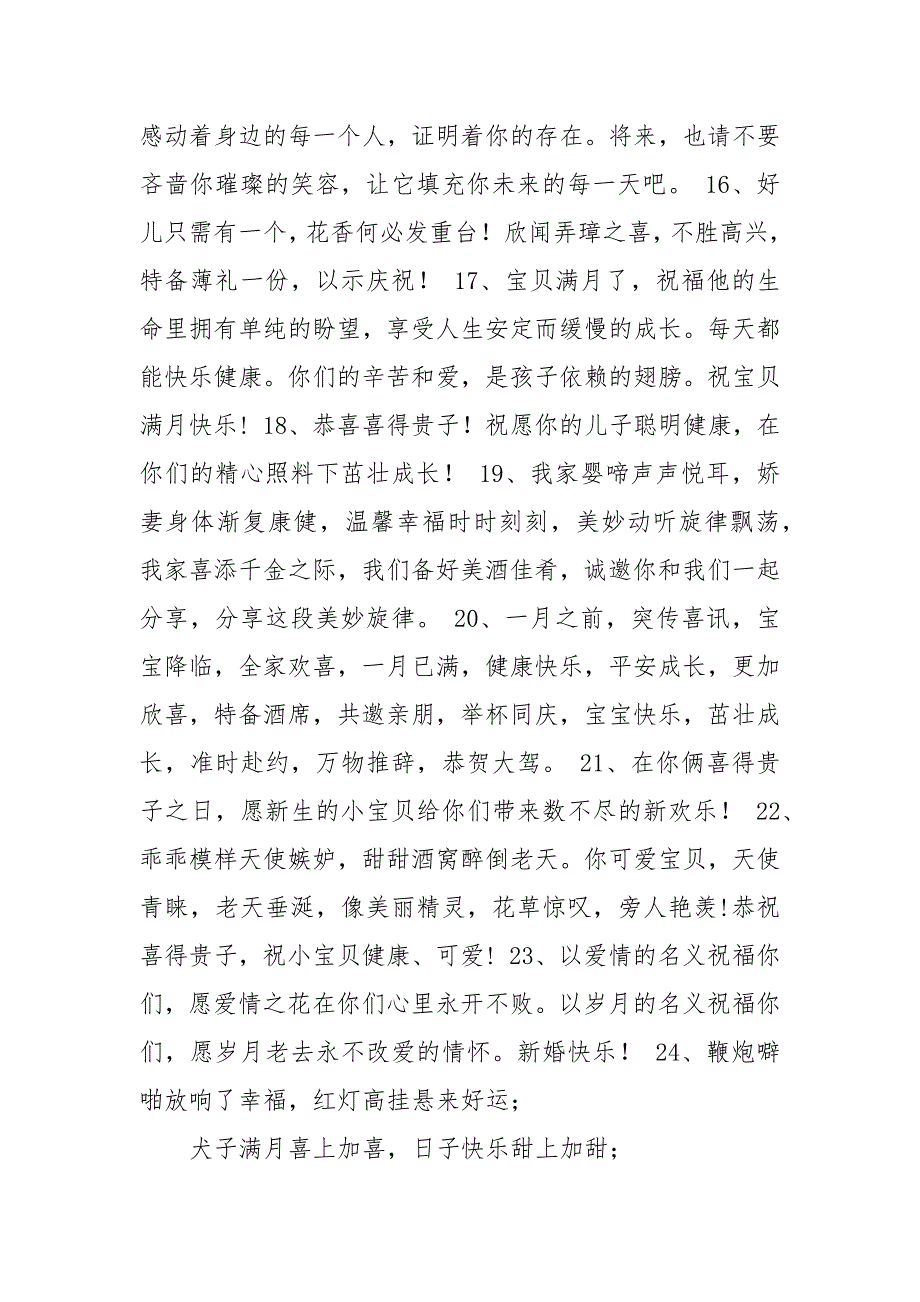 感动着身边的每一个人，证明着你的存在。将来，也请不要
吝啬你璀璨的笑容，让它填充你未来的每一天吧。 16、好
儿只需有一个，花香何必发重台！欣闻弄璋之喜，不胜高兴，
特备薄礼一份，以示庆祝！ 17、宝贝满月了，祝福他的生
命里拥有单纯的盼望，享受人生安定而缓慢的成长。每天都
能快乐健康。你们的辛苦和爱，是孩子依赖的翅膀。祝宝贝
满月快乐! 18、恭喜喜得贵子！祝愿你的儿子聪明健康，在
你们的精心照料下茁壮成长！ 19、我家婴啼声声悦耳，娇
妻身体渐复康健，温馨幸福时时刻刻，美妙动听旋律飘荡，
我家喜添千金之际，我们备好美酒佳肴，诚邀你和我们一起
分享，分享这段美妙旋律。 20、一月之前，突传喜讯，宝
宝降临，全家欢喜，一月已满，健康快乐，平安成长，更加
欣喜，特备酒席，共邀亲朋，举杯同庆，宝宝快乐，茁壮成
长，准时赴约，万物推辞，恭贺大驾。 21、在你俩喜得贵
子之日，愿新生的小宝贝给你们带来数不尽的新欢乐！ 22、
乖乖模样天使嫉妒，甜甜酒窝醉倒老天。你可爱宝贝，天使
青睐，老天垂涎，像美丽精灵，花草惊叹，旁人艳羡!恭祝
喜得贵子，祝小宝贝健康、可爱! 23、以爱情的名义祝福你
们，愿爱情之花在你们心里永开不败。以岁月的名义祝福你
们，愿岁月老去永不改爱的情怀。新婚快乐！ 24、鞭炮噼
啪放响了幸福，红灯高挂悬来好运；
犬子满月喜上加喜，日子快乐甜上加甜；